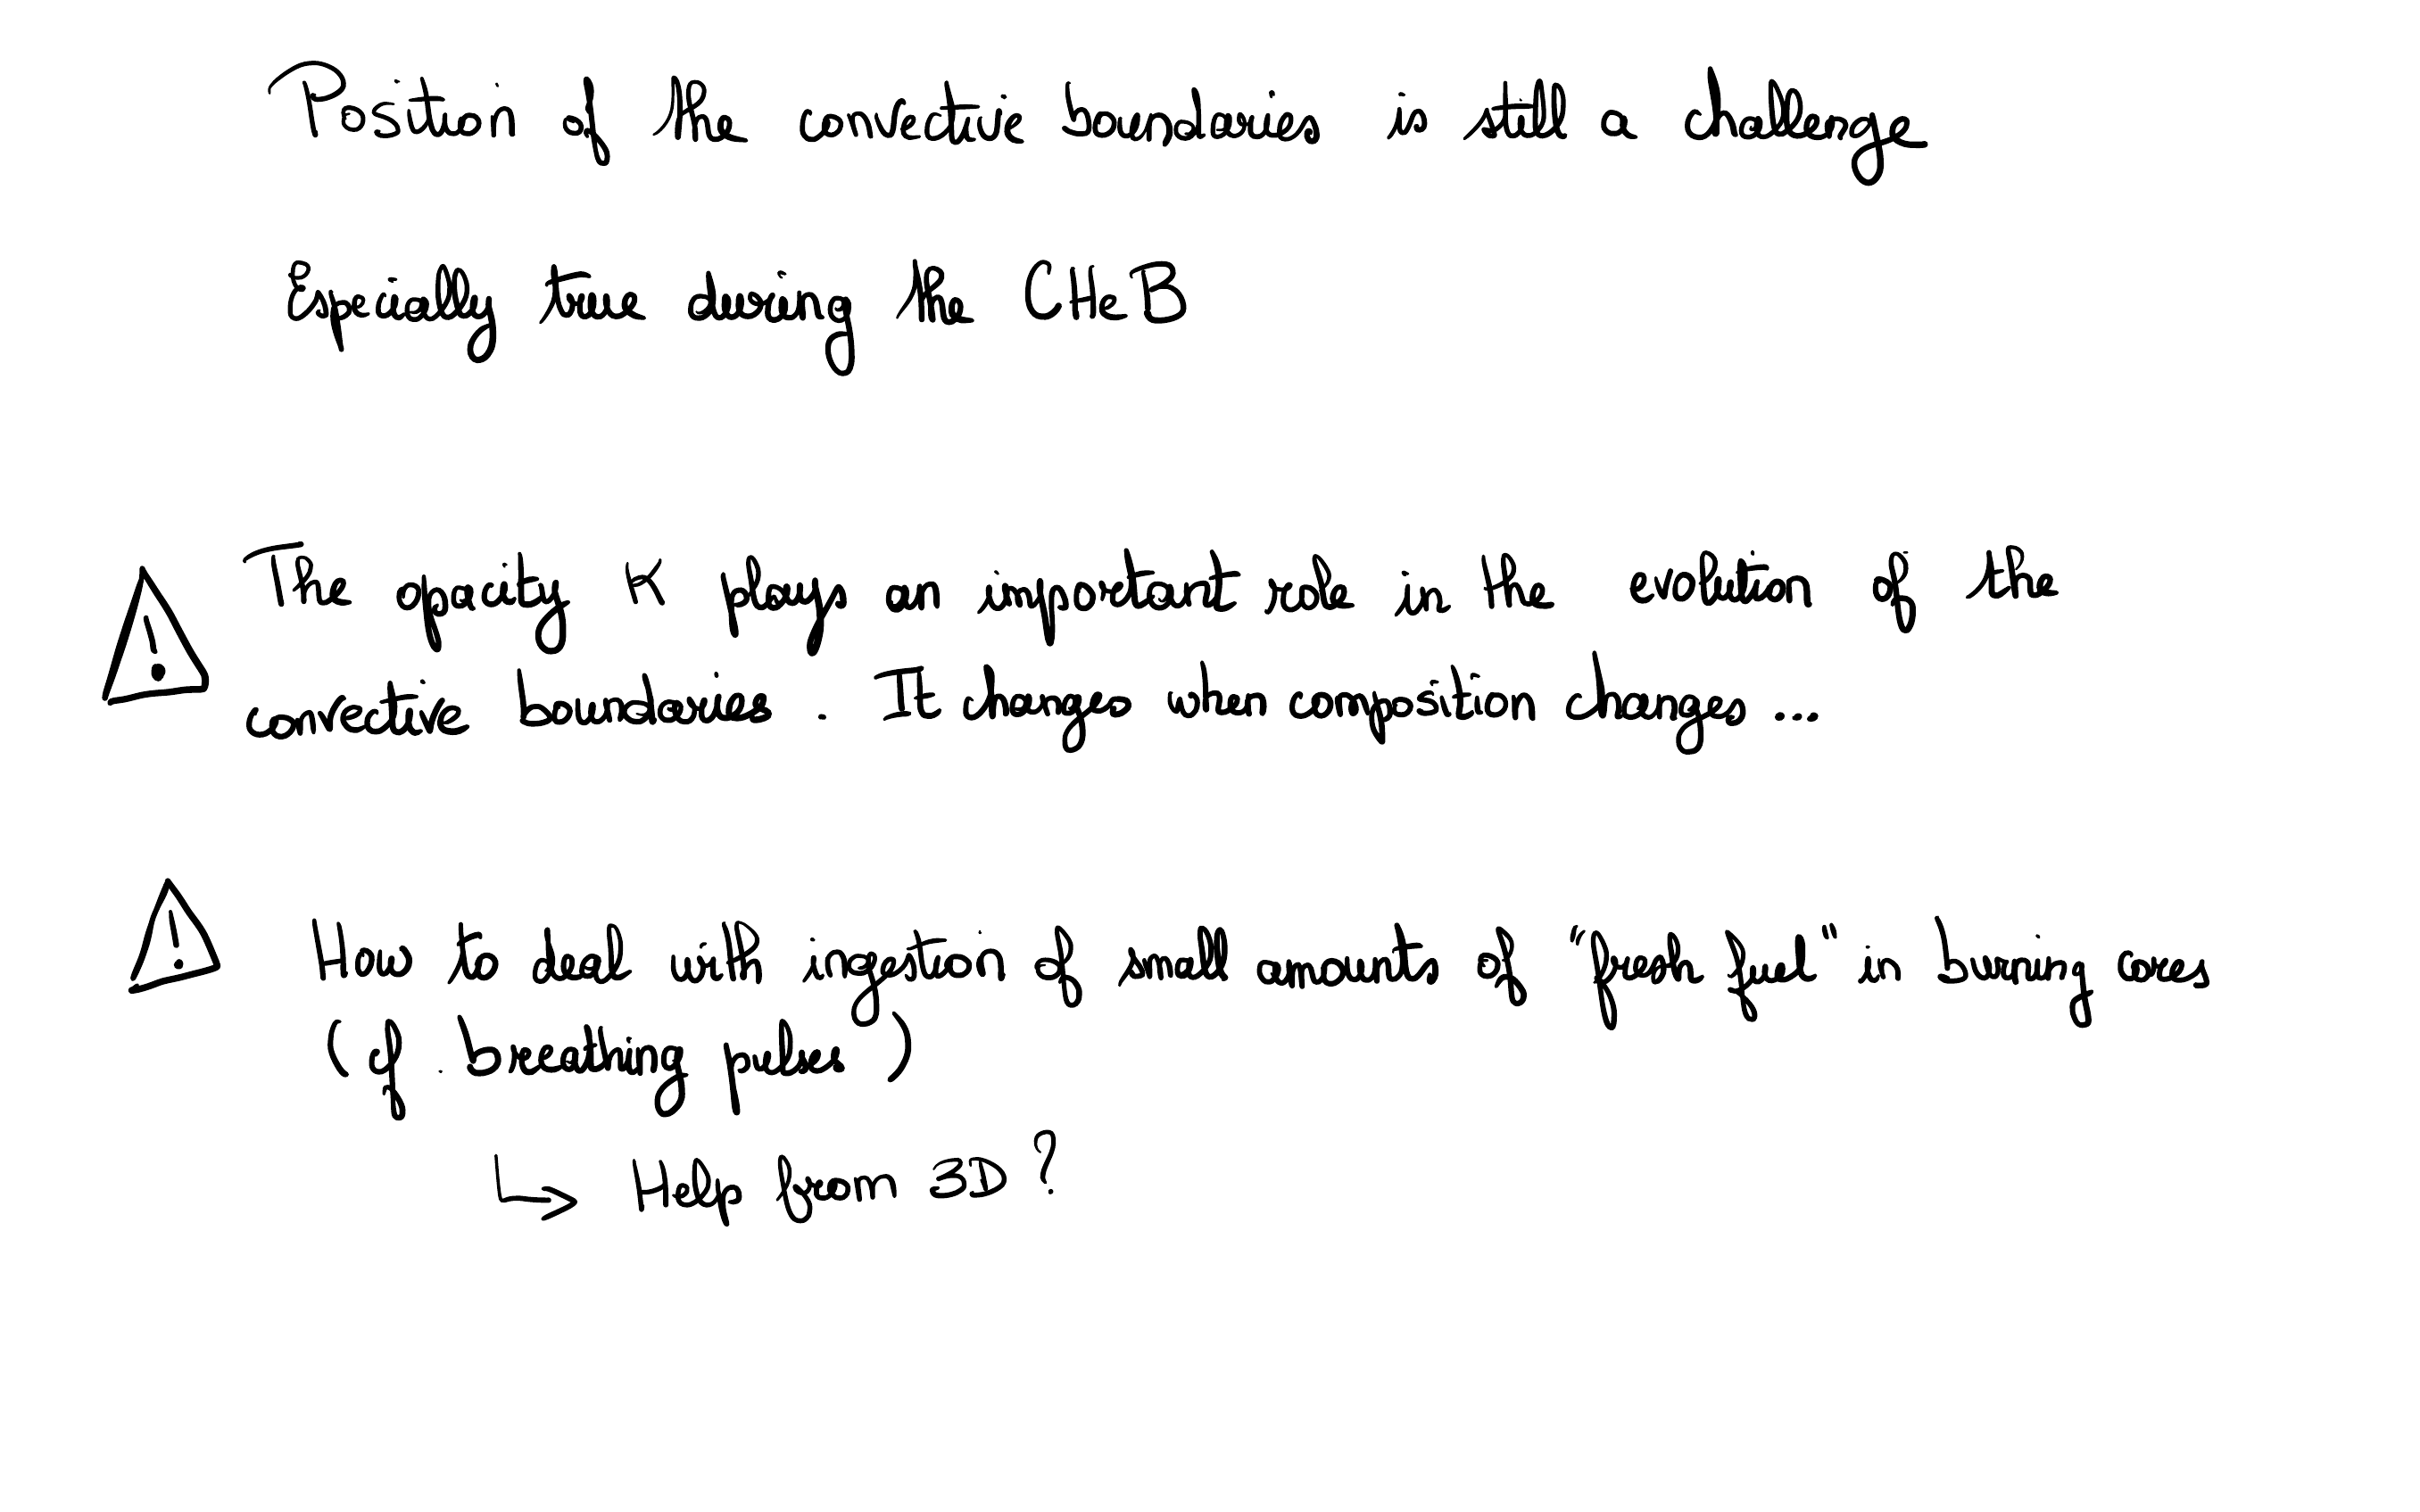 Position of the convective boundaries is still a challenge
Especially true during the CHeB
The opacity κ plays an important role in the evolution of the
convective boundaries. It changes when composition changes ...
How to deal with ingestion of small amounts of "fresh fuel" in burning cores
(cf. breathing pulses)
↳ Help from 3D ?